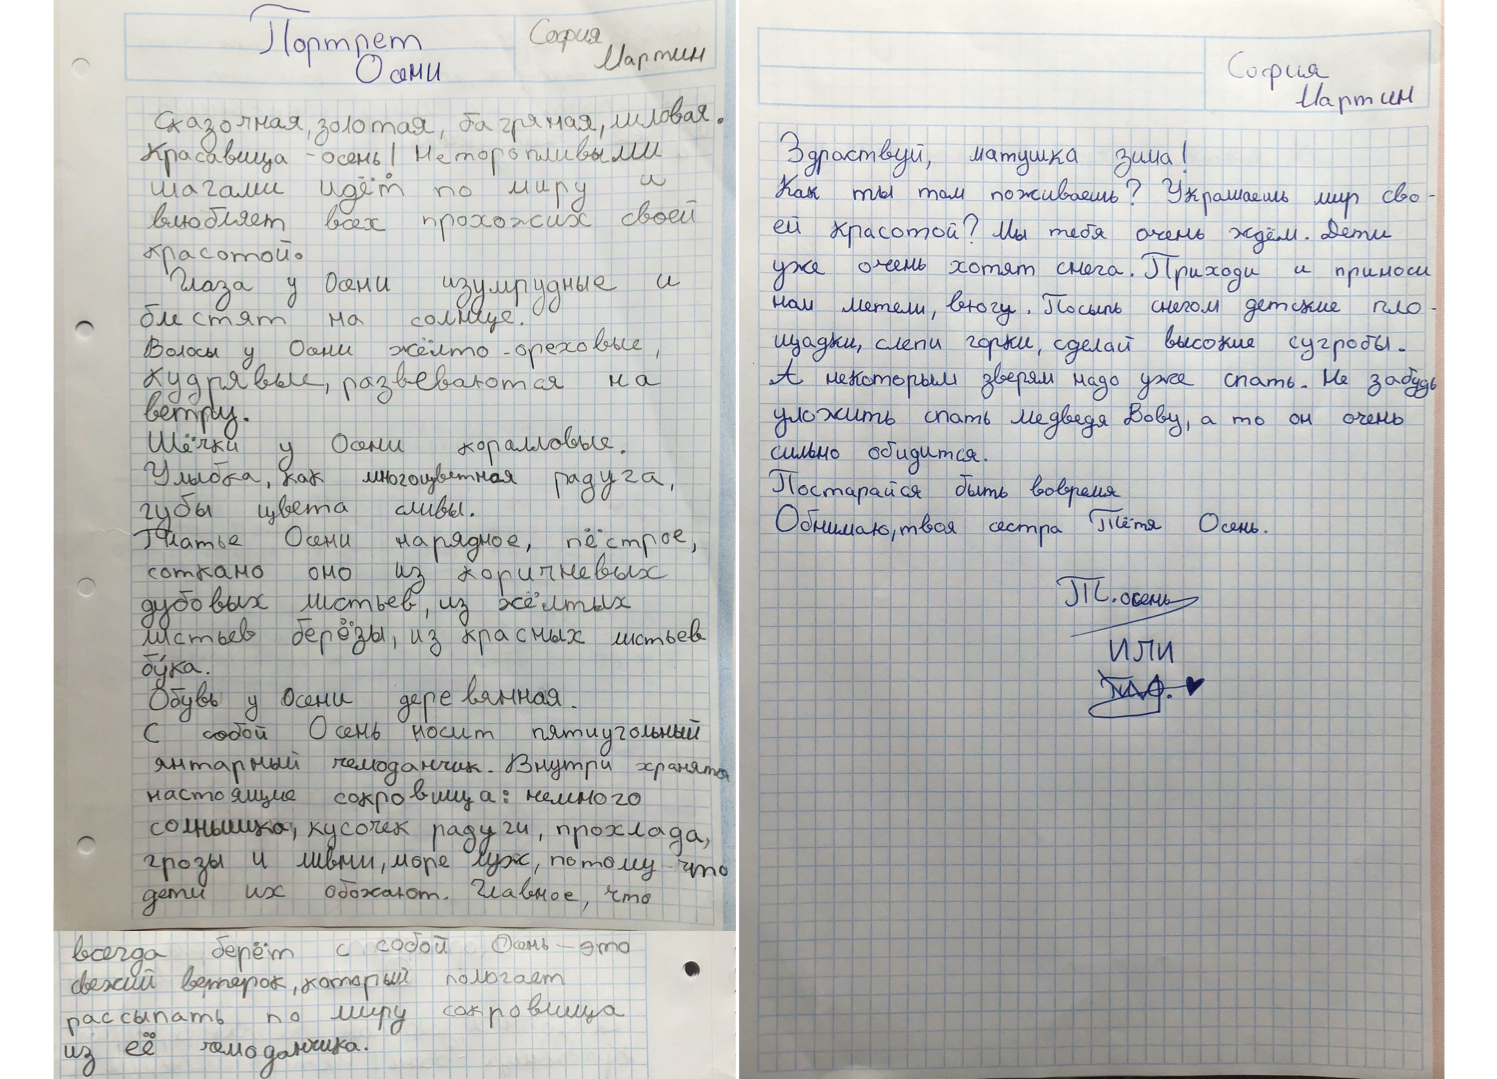 Портрет
Осени
София
Мартин
Сказочная, золотая, багряная, лиловая.
Красавица - осень! Неторопливыми
шагами идёт по миру и
влюбляет всех прохожих своей
красотой.
Глаза у Осени изумрудные и
блестят на солнце.
Волосы у Осени жёлто-ореховые,
кудрявые, развеваются на
ветру.
Щёчки у Осени коралловые.
Улыбка, как многоцветная радуга,
губы цвета сливы.
Платье Осени нарядное, пёстрое,
соткано оно из коричневых
дубовых листьев, из жёлтых
листьев берёзы, из красных листьев
бука.
Обувь у Осени деревянная.
С собой Осень носит пятиугольный
янтарный чемоданчик. Внутри хранятся
настоящие сокровища: немного
солнышка, кусочек радуги, прохлада,
грозы и ливни, море луж, потому что
дети их обожают. Главное, что
всегда берёт с собой Осень - это
свежий ветерок, который помогает
рассыпать по миру сокровища
из её чемоданчика.
София
Мартин
Здраствуй, матушка зима!
Как ты там поживаешь? Украшаешь мир сво-
ей красотой? Мы тебя очень ждём. Дети
уже очень хотят снега. Приходи и приноси
нам метели, вьюгу. Посыпь снегом детские пло-
щадки, слепи горки, сделай высокие сугробы.
А некоторым зверям надо уже спать. Не забудь
уложить спать медведя Вову, а то он очень
сильно обидится.
Постарайся быть вовремя
Обнимаю, твоя сестра Тётя Осень.
Т. осень
ИЛИ